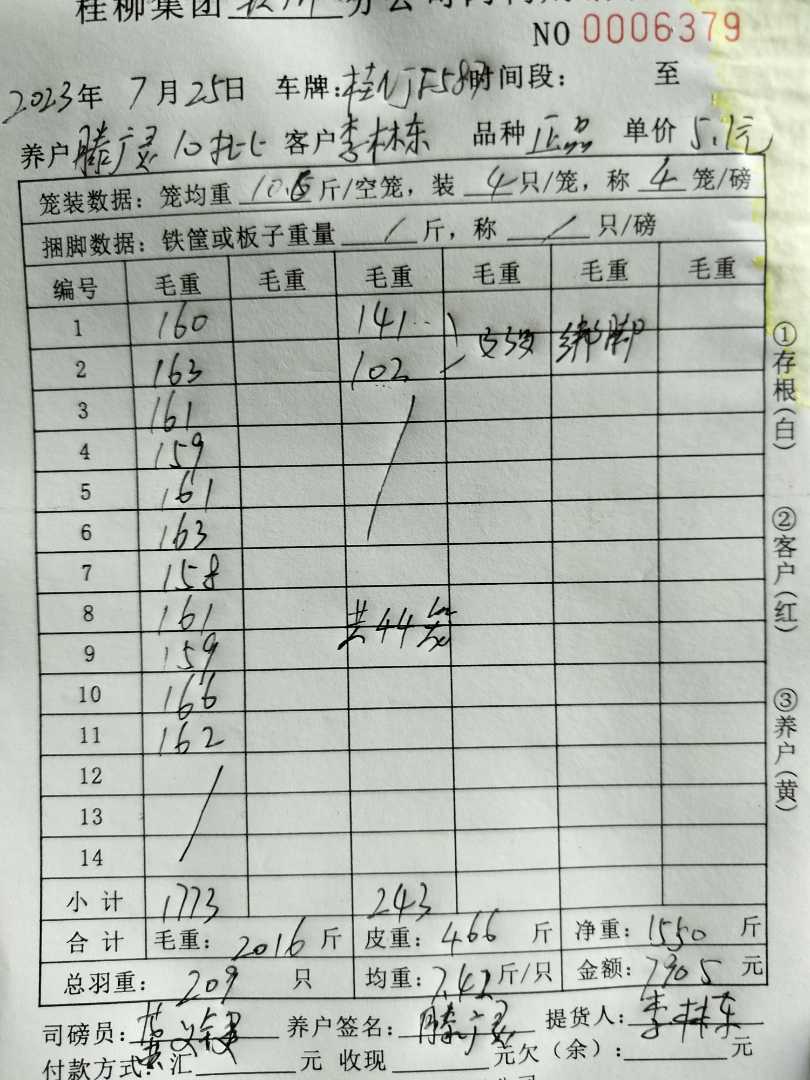 桂柳集团 分公司
NO 0006379
2023年 7月25日 车牌: 时间段: 至
养户 滕广灵 10批 客户 李林东 品种 正品 单价 5.1元
笼装数据: 笼均重 10.6 斤/空笼, 装 4 只/笼, 称 4 笼/磅
捆脚数据: 铁筐或板子重量 / 斤, 称 / 只/磅
编号 毛重 毛重 毛重 毛重 毛重 毛重
1 160 141 绑脚
2 163 102
3 161
4 159
5 161
6 163
7 158
8 161 共44笼
9 159
10 166
11 162
12
13
14
小计 1773 243
合计 毛重: 2016 斤 皮重: 466 斤 净重: 1550 斤
总羽重: 209 只 均重: 7.42 斤/只 金额: 7905 元
司磅员: 养户签名: 滕广灵 提货人: 李林东
付款方式: 汇 元 收现 元欠(余): 元
①存根(白) ②客户(红) ③养户(黄)